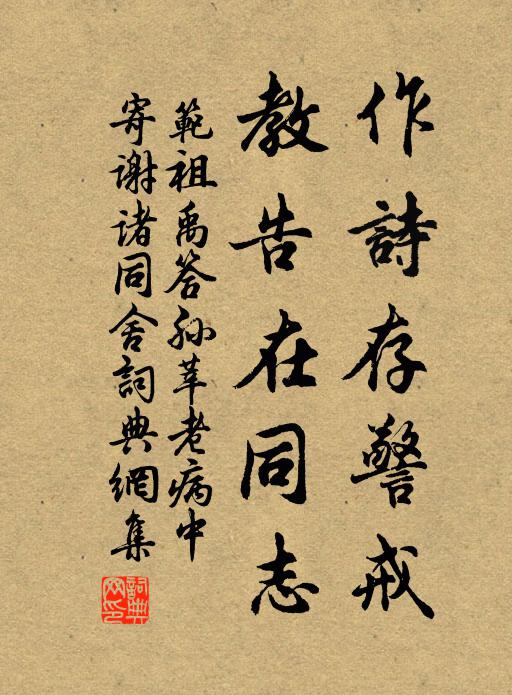 作詩存警戒
教告在同志
範祖禹答孙莘老病中
寄谢诸同舍詞典網集
詞典网印